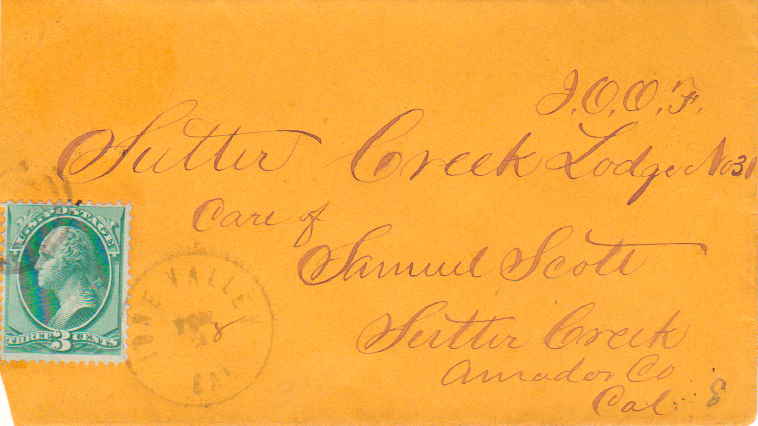 I.O.O.F.
Sutter Creek Lodge No 31
Care of
Samuel Scott
Sutter Creek
Amador Co
Cal.
8
U.S. POSTAGE
THREE 3 CENTS
IONE VALLEY
CAL